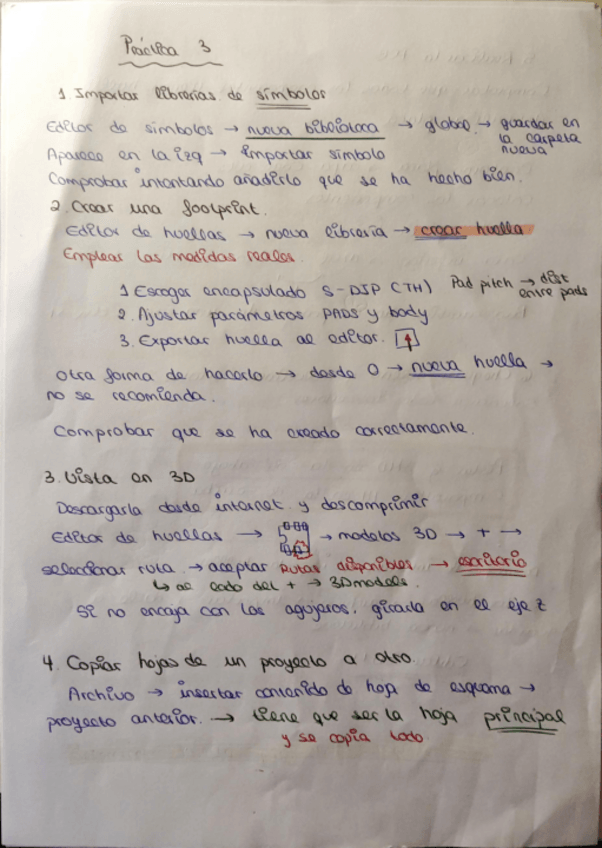 Práctica 3
1. Importar librerías de símbolos
Editor de símbolos → nueva biblioteca → global → guardar en
la carpeta
nueva
Aparece en la izq → importar símbolo
Comprobar intentando añadirlo que se ha hecho bien.
2. Crear una footprint.
Editor de huellas → nueva librería → crear huella
Emplear las medidas reales.
1 Escoger encapsulado S-DIP (TH) Pad pitch → dist
entre pads
2. Ajustar parámetros PADS y body
3. Exportar huella al editor. ↑
Otra forma de hacerlo → desde 0 → nueva huella →
no se recomienda.
Comprobar que se ha creado correctamente.
3. Vista en 3D
Descargarla desde internet y descomprimir
Editor de huellas → → modelos 3D → + →
seleccionar ruta. → aceptar Rutas disponibles → escritorio
↳ al lado del + → 3Dmodels.
Si no encaja con los agujeros, girada en el eje z
4. Copiar hojas de un proyecto a otro
Archivo → insertar contenido de hoja de esquema →
proyecto anterior. → tiene que ser la hoja principal
y se copia todo.